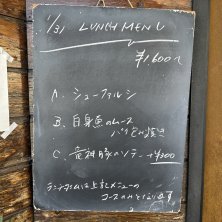 1/31 LUNCH MENU
¥1,600-
A. シューファルシ
B. 白身魚のムース
パイ包み焼き
C. 竜神豚のソテー +¥300
ランチタイムは上記メニューの
コースのみとなります